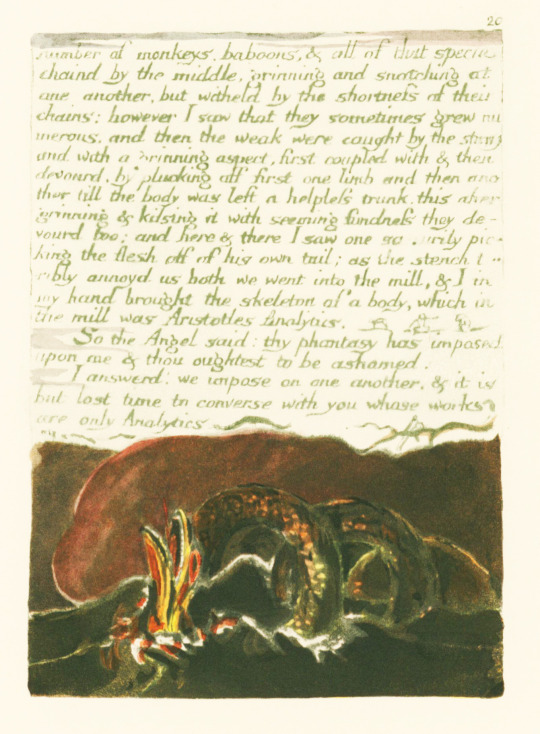 20
number of monkeys, baboons, & all of that species
chaind by the middle, grinning and snatching at
one another, but witheld by the shortness of their
chains: however I saw that they sometimes grew nu
merous, and then the weak were caught by the strong
and with a grinning aspect, first coupled with & then
devourd, by plucking off first one limb and then ano
ther till the body was left a helpless trunk. this after
grinning & kissing it with seeming fondness they de-
vourd too; and here & there I saw one savourily pic-
king the flesh off of his own tail; as the stench ter-
ribly annoyd us both we went into the mill, & I in
my hand brought the skeleton of a body, which in
the mill was Aristotles Analytics.
So the Angel said: thy phantasy has imposed
upon me & thou oughtest to be ashamed.
I answerd: we impose on one another, & it is
but lost time to converse with you whose works
are only Analytics